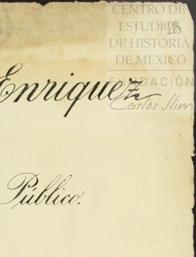 CENTRO DE
ESTUDIOS
DE HISTORIA
DE MEXICO
FUNDACIÓN
Carlos Slim
Enriquez
Público.